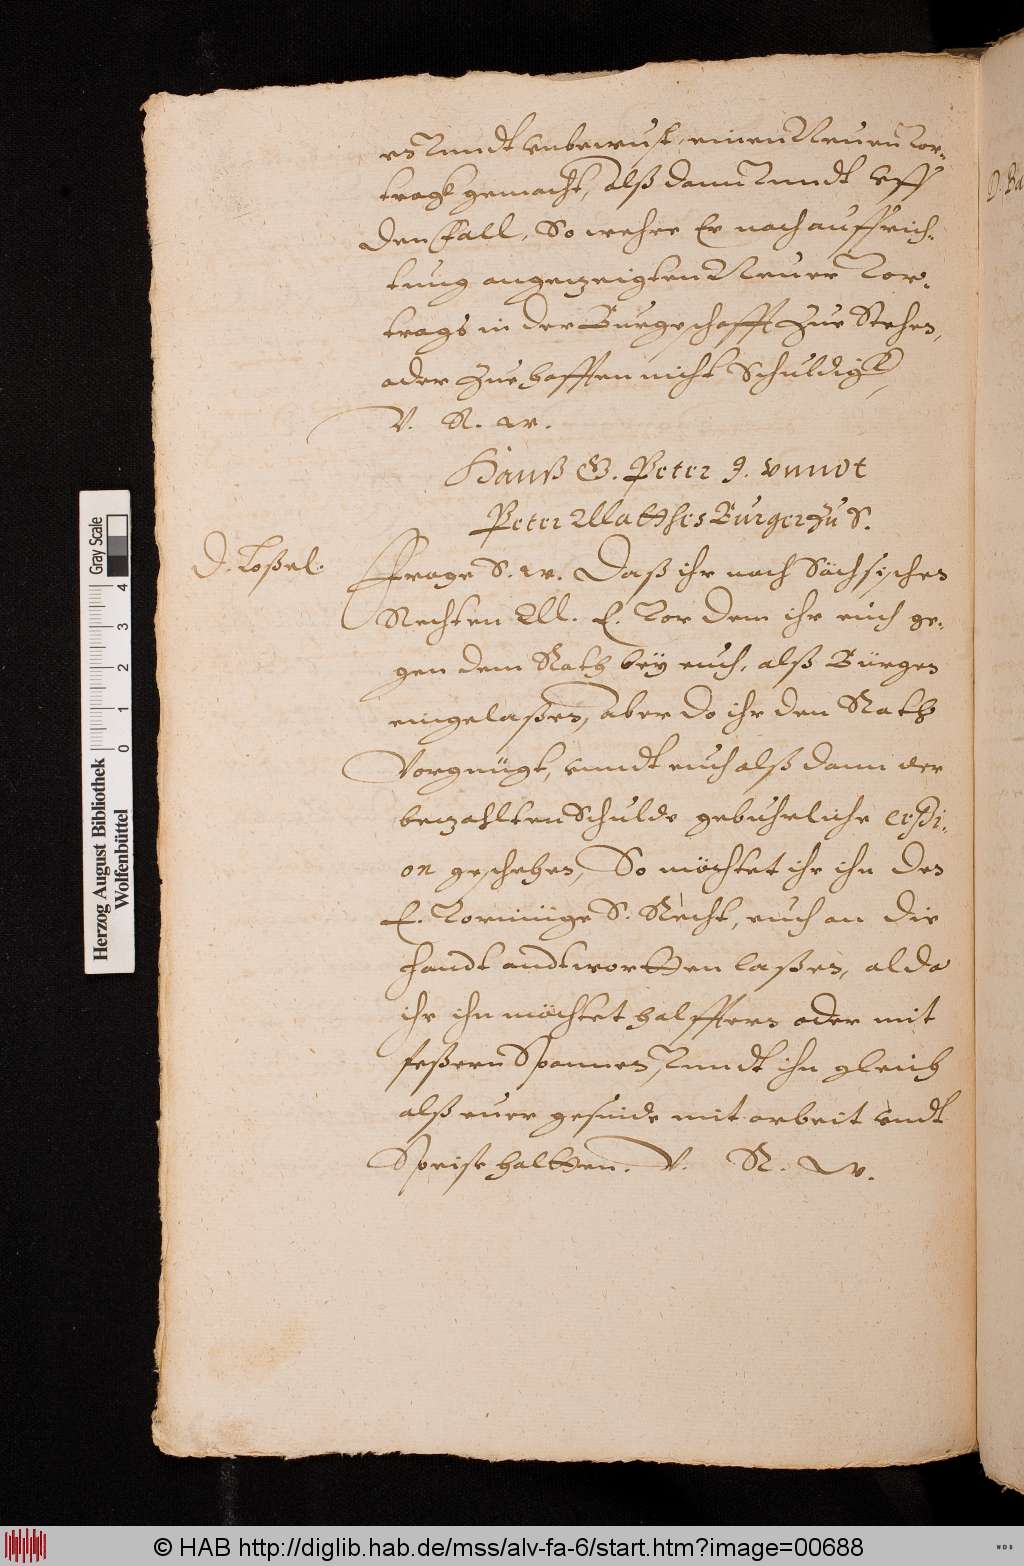 en Vnndt vnbewust, einen Neuen Vor-
tragk gemacht, Alß dann Vnndt vff
den Fall, So wehre Er nach auffrich-
tung angenzeigten Neuer Vor-
trags in der Burgeschafft Zue Stehen,
oder Zue hafften nicht Schuldigk,
V. R. W.
Hanß G. Peter J. vnndt
Peter Matthes Burger Zu S.
D. Loßel.
Frage S. w. Daß ihr nach Sächsischen
Rechten M. E. Vor dem ihr euch ge-
gen dem Rath bey euch, alß Bürgen
eingelaßen, aber do ihr den Rath
Vorgnügt, vnndt euch alß dann der
benzahlten Schulde gebuhrliche
on geschehen, So möchtet ihr ihn den
E. Vormüge S. Recht, euch an die
handt andtwortten laßen, alda
ihr ihn möchtet halfftern oder mit
feßern Spannen, Vnndt ihn gleich
alß euer gesinde mit arbeit vndt
Speise haltten. V. R. W.
D. Ba
Herzog August Bibliothek
Wolfenbüttel
0 1 2 3 4
Gray Scale
© HAB http://diglib.hab.de/mss/alv-fa-6/start.htm?image=00688